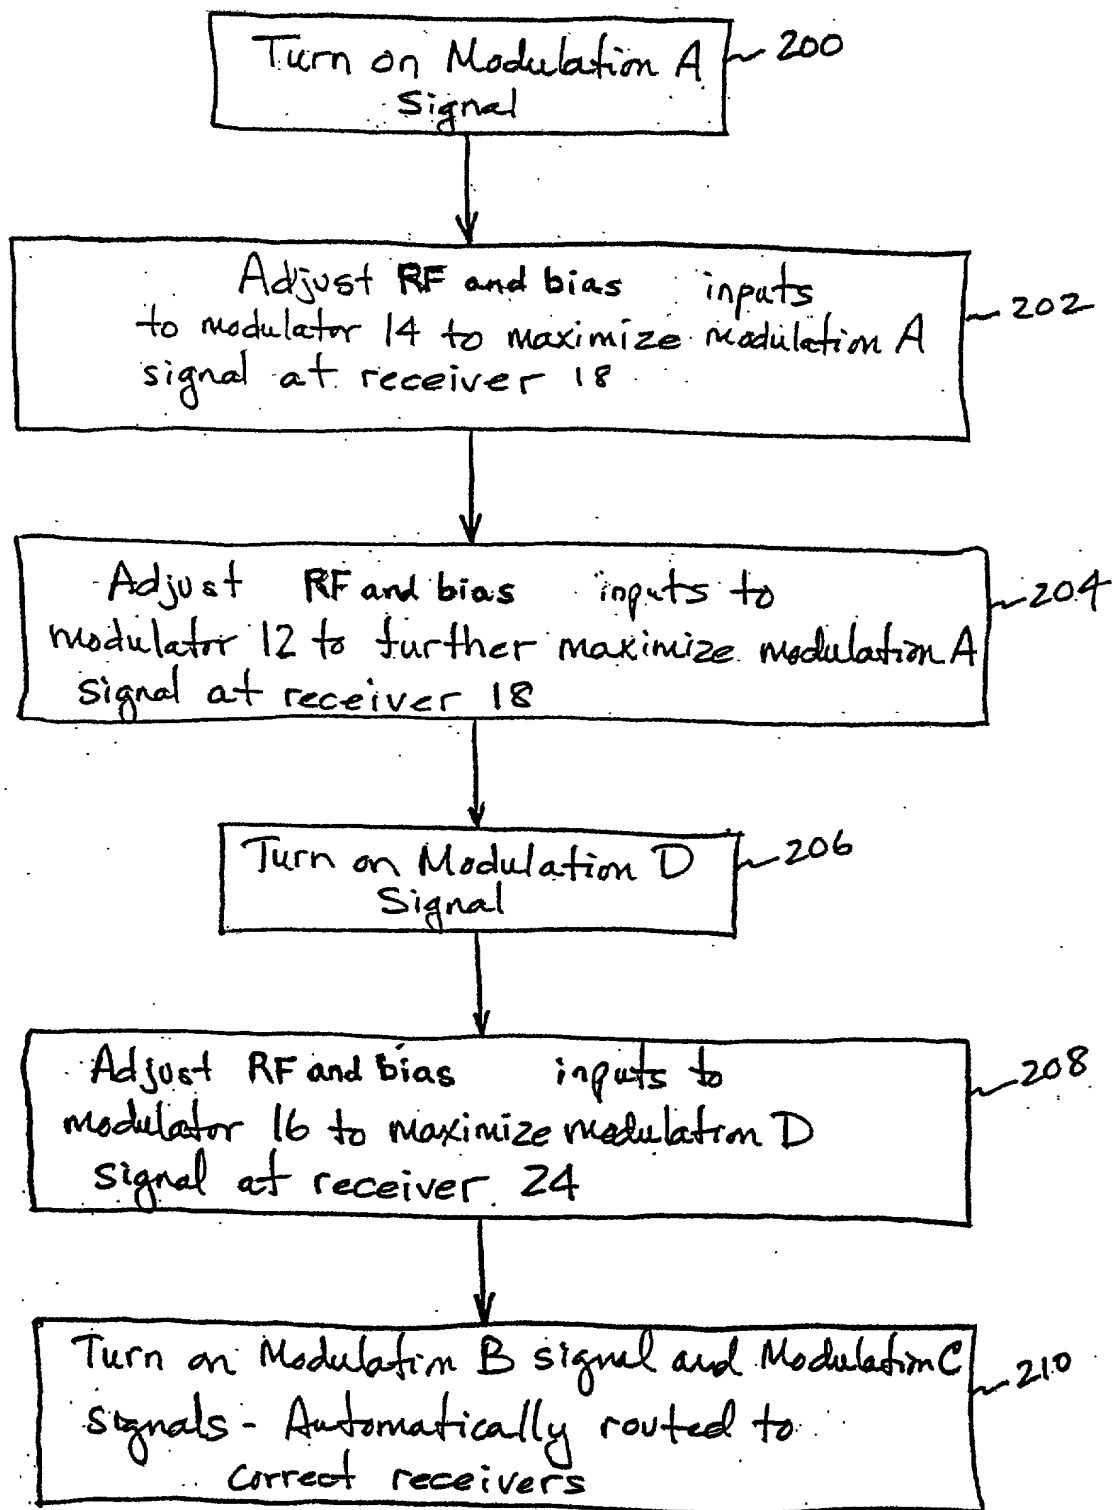 Turn on Modulation A
Signal
200
Adjust RF and bias inputs
to modulator 14 to maximize modulation A
signal at receiver 18
202
Adjust RF and bias inputs to
modulator 12 to further maximize modulation A
signal at receiver 18
204
Turn on Modulation D
Signal
206
Adjust RF and bias inputs to
modulator 16 to maximize modulation D
signal at receiver 24
208
Turn on Modulation B signal and Modulation C
signals - Automatically routed to
correct receivers
210